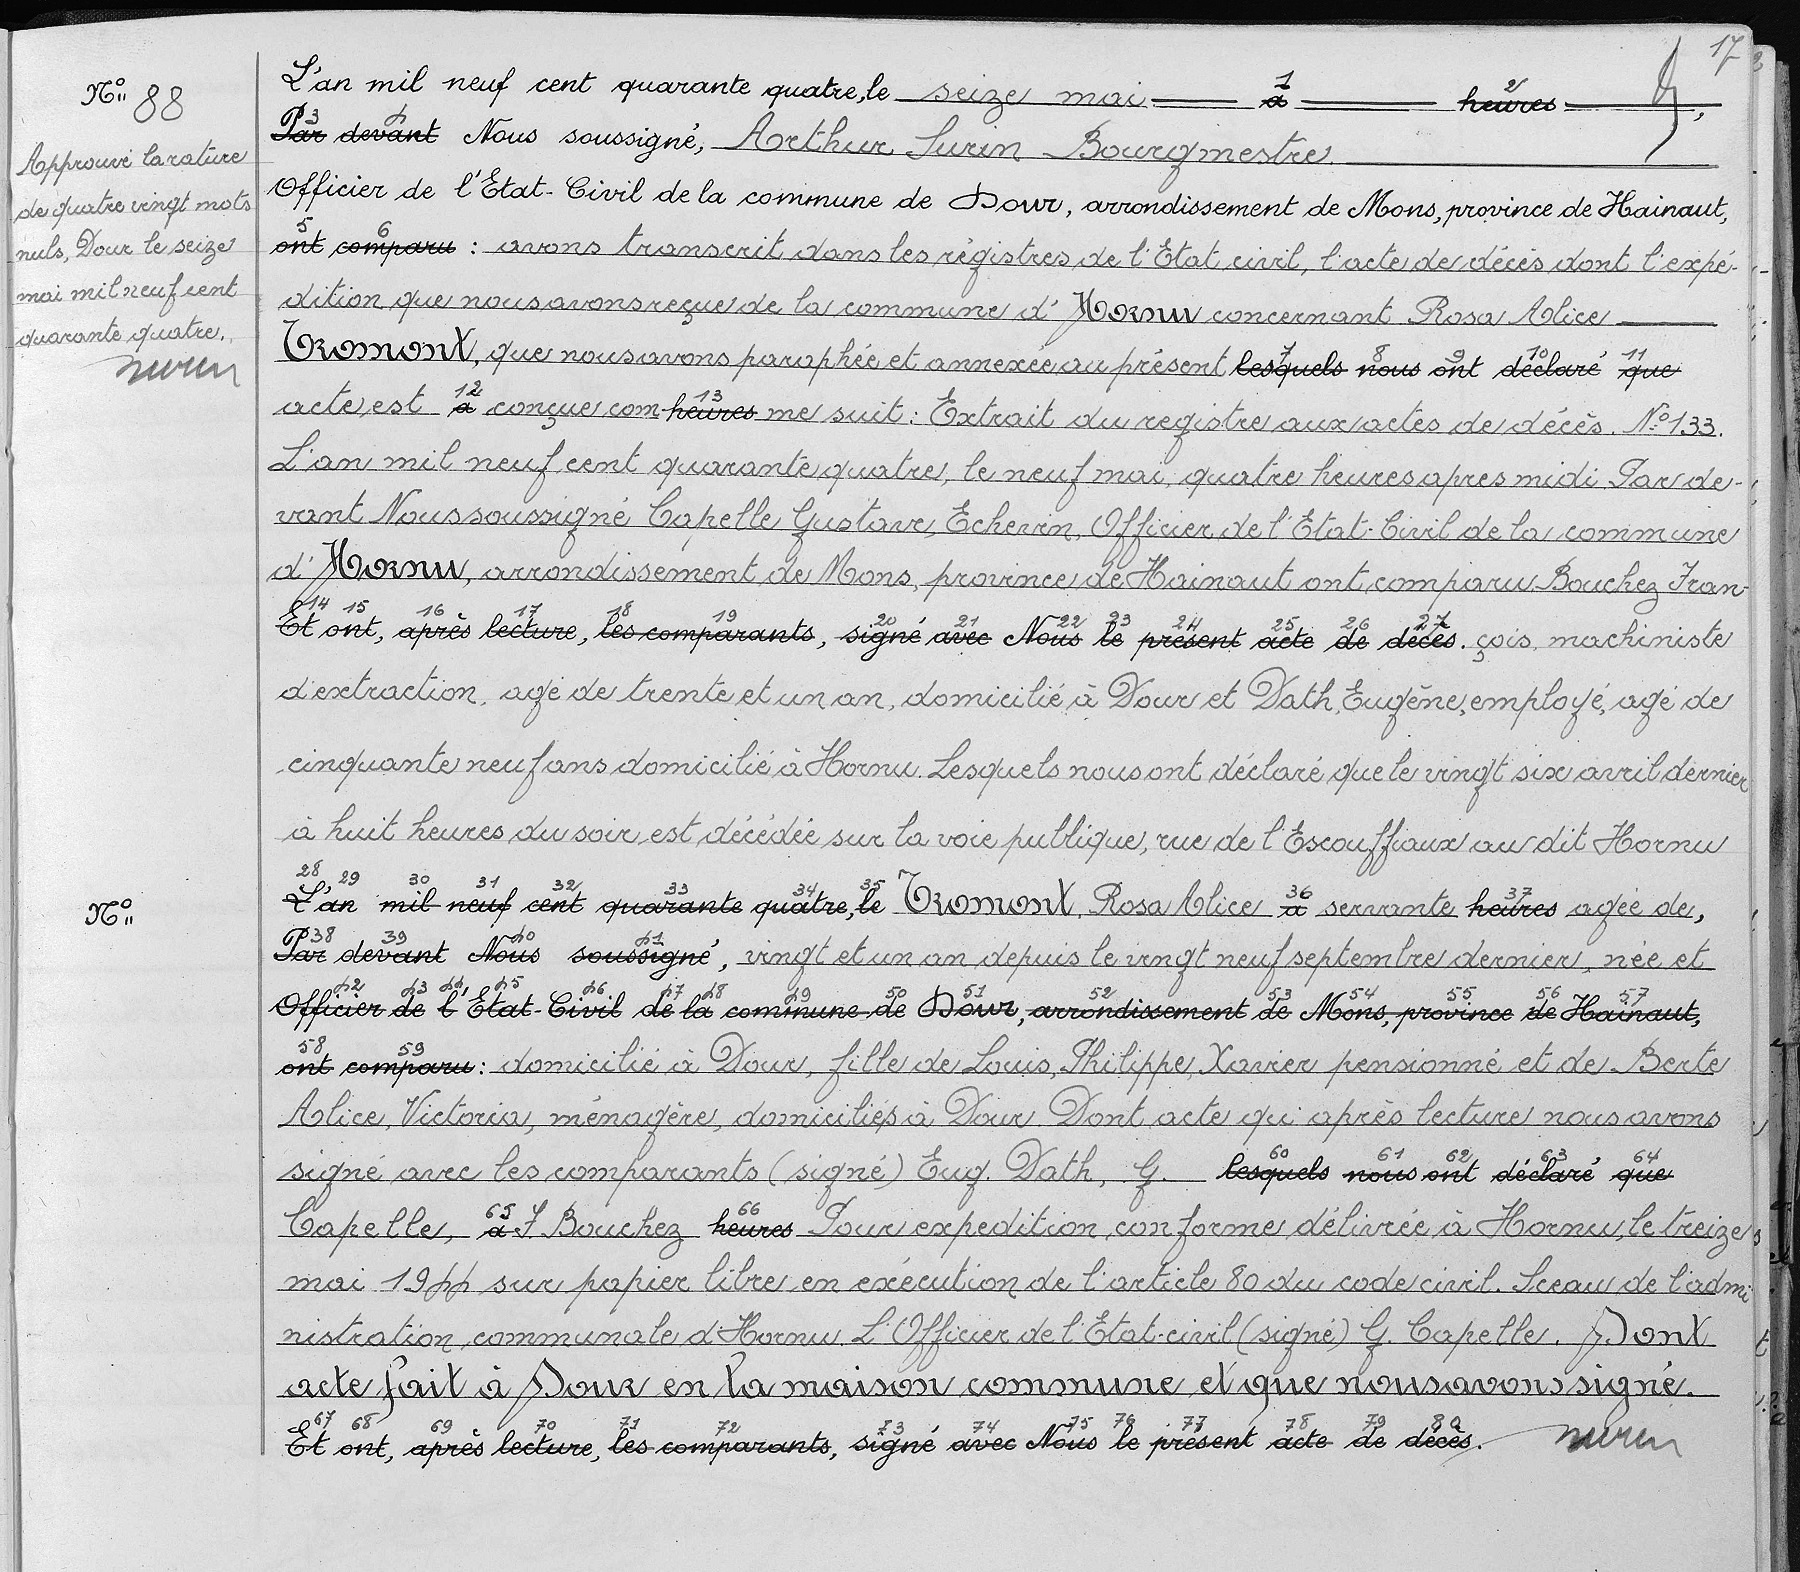 17
Nº 88
L'an mil neuf cent quarante quatre, le seize mai 1 à 2 heures
3 Par 4 devant Nous soussigné, Arthur Surin Bourgmestre
Approuvé la rature
de quatre vingt mots
nuls, Dour le seize
mai mil neuf cent
quarante quatre.
Officier de l'Etat-Civil de la commune de Dour, arrondissement de Mons, province de Hainaut,
5 ont 6 comparu : avons transcrit dans les régistres de l'Etat civil, l'acte de décès dont l'expé-
dition que nous avons reçue de la commune d'Hornu concernant Rosa Alice
Tromont, que nous avons paraphée et annexée au présent 7 lesquels 8 nous 9 ont 10 déclaré 11 que
acte, est 12 à conçue com- 13 heures me suit : Extrait du registre aux actes de décès. Nº 133.
L'an mil neuf cent quarante quatre, le neuf mai, quatre heures apres midi. Par de-
vant Nous soussigné Capelle Gustave, Echevin, Officier de l'Etat-Civil de la commune
d'Hornu, arrondissement de Mons, province de Hainaut ont comparu Bouchez Fran-
14 Et 15 ont, 16 après 17 lecture, 18 les 19 comparants, 20 signé 21 avec 22 Nous 23 le 24 présent 25 acte 26 de 27 décès. çois, machiniste
d'extraction, agé de trente et un an, domicilié à Dour et Dath, Eugène, employé, agé de
cinquante neuf ans domicilié à Hornu. Lesquels nous ont déclaré que le vingt six avril dernier
à huit heures du soir, est décédée sur la voie publique, rue de l'Escouffiaux au dit Hornu
Nº
28 L' 29 an 30 mil 31 neuf 32 cent 33 quarante 34 quatre, 35 le Tromont, Rosa Alice 36 à servante 37 heures agée de,
38 Par 39 devant 40 Nous 41 soussigné, vingt et un an depuis le vingt neuf septembre dernier, née et
42 Officier 43 de 44 l' 45 Etat- 46 Civil 47 de 48 la 49 commune 50 de 51 Dour, 52 arrondissement 53 de 54 Mons, 55 province 56 de 57 Hainaut,
58 ont 59 comparu : domicilié à Dour, fille de Louis, Philippe, Xavier pensionné et de Berte
Alice, Victoria, ménagère, domiciliés à Dour. Dont acte qui après lecture nous avons
signé avec les comparants (signé) Eug. Dath, G. 60 lesquels 61 nous 62 ont 63 déclaré 64 que
Capelle, 65 à F Bouchez 66 heures Pour expedition conforme délivrée à Hornu, le treize
mai 1944 sur papier libre en exécution de l'article 80 du code civil. Sceau de l'admi
nistration communale d'Hornu. L'Officier de l'Etat-civil (signé) G. Capelle. Dont
acte fait à Dour en la maison commune et que nous avons signé.
67 Et 68 ont, 69 après 70 lecture, 71 les 72 comparants, 73 signé 74 avec 75 Nous 76 le 77 présent 78 acte 79 de 80 décès.